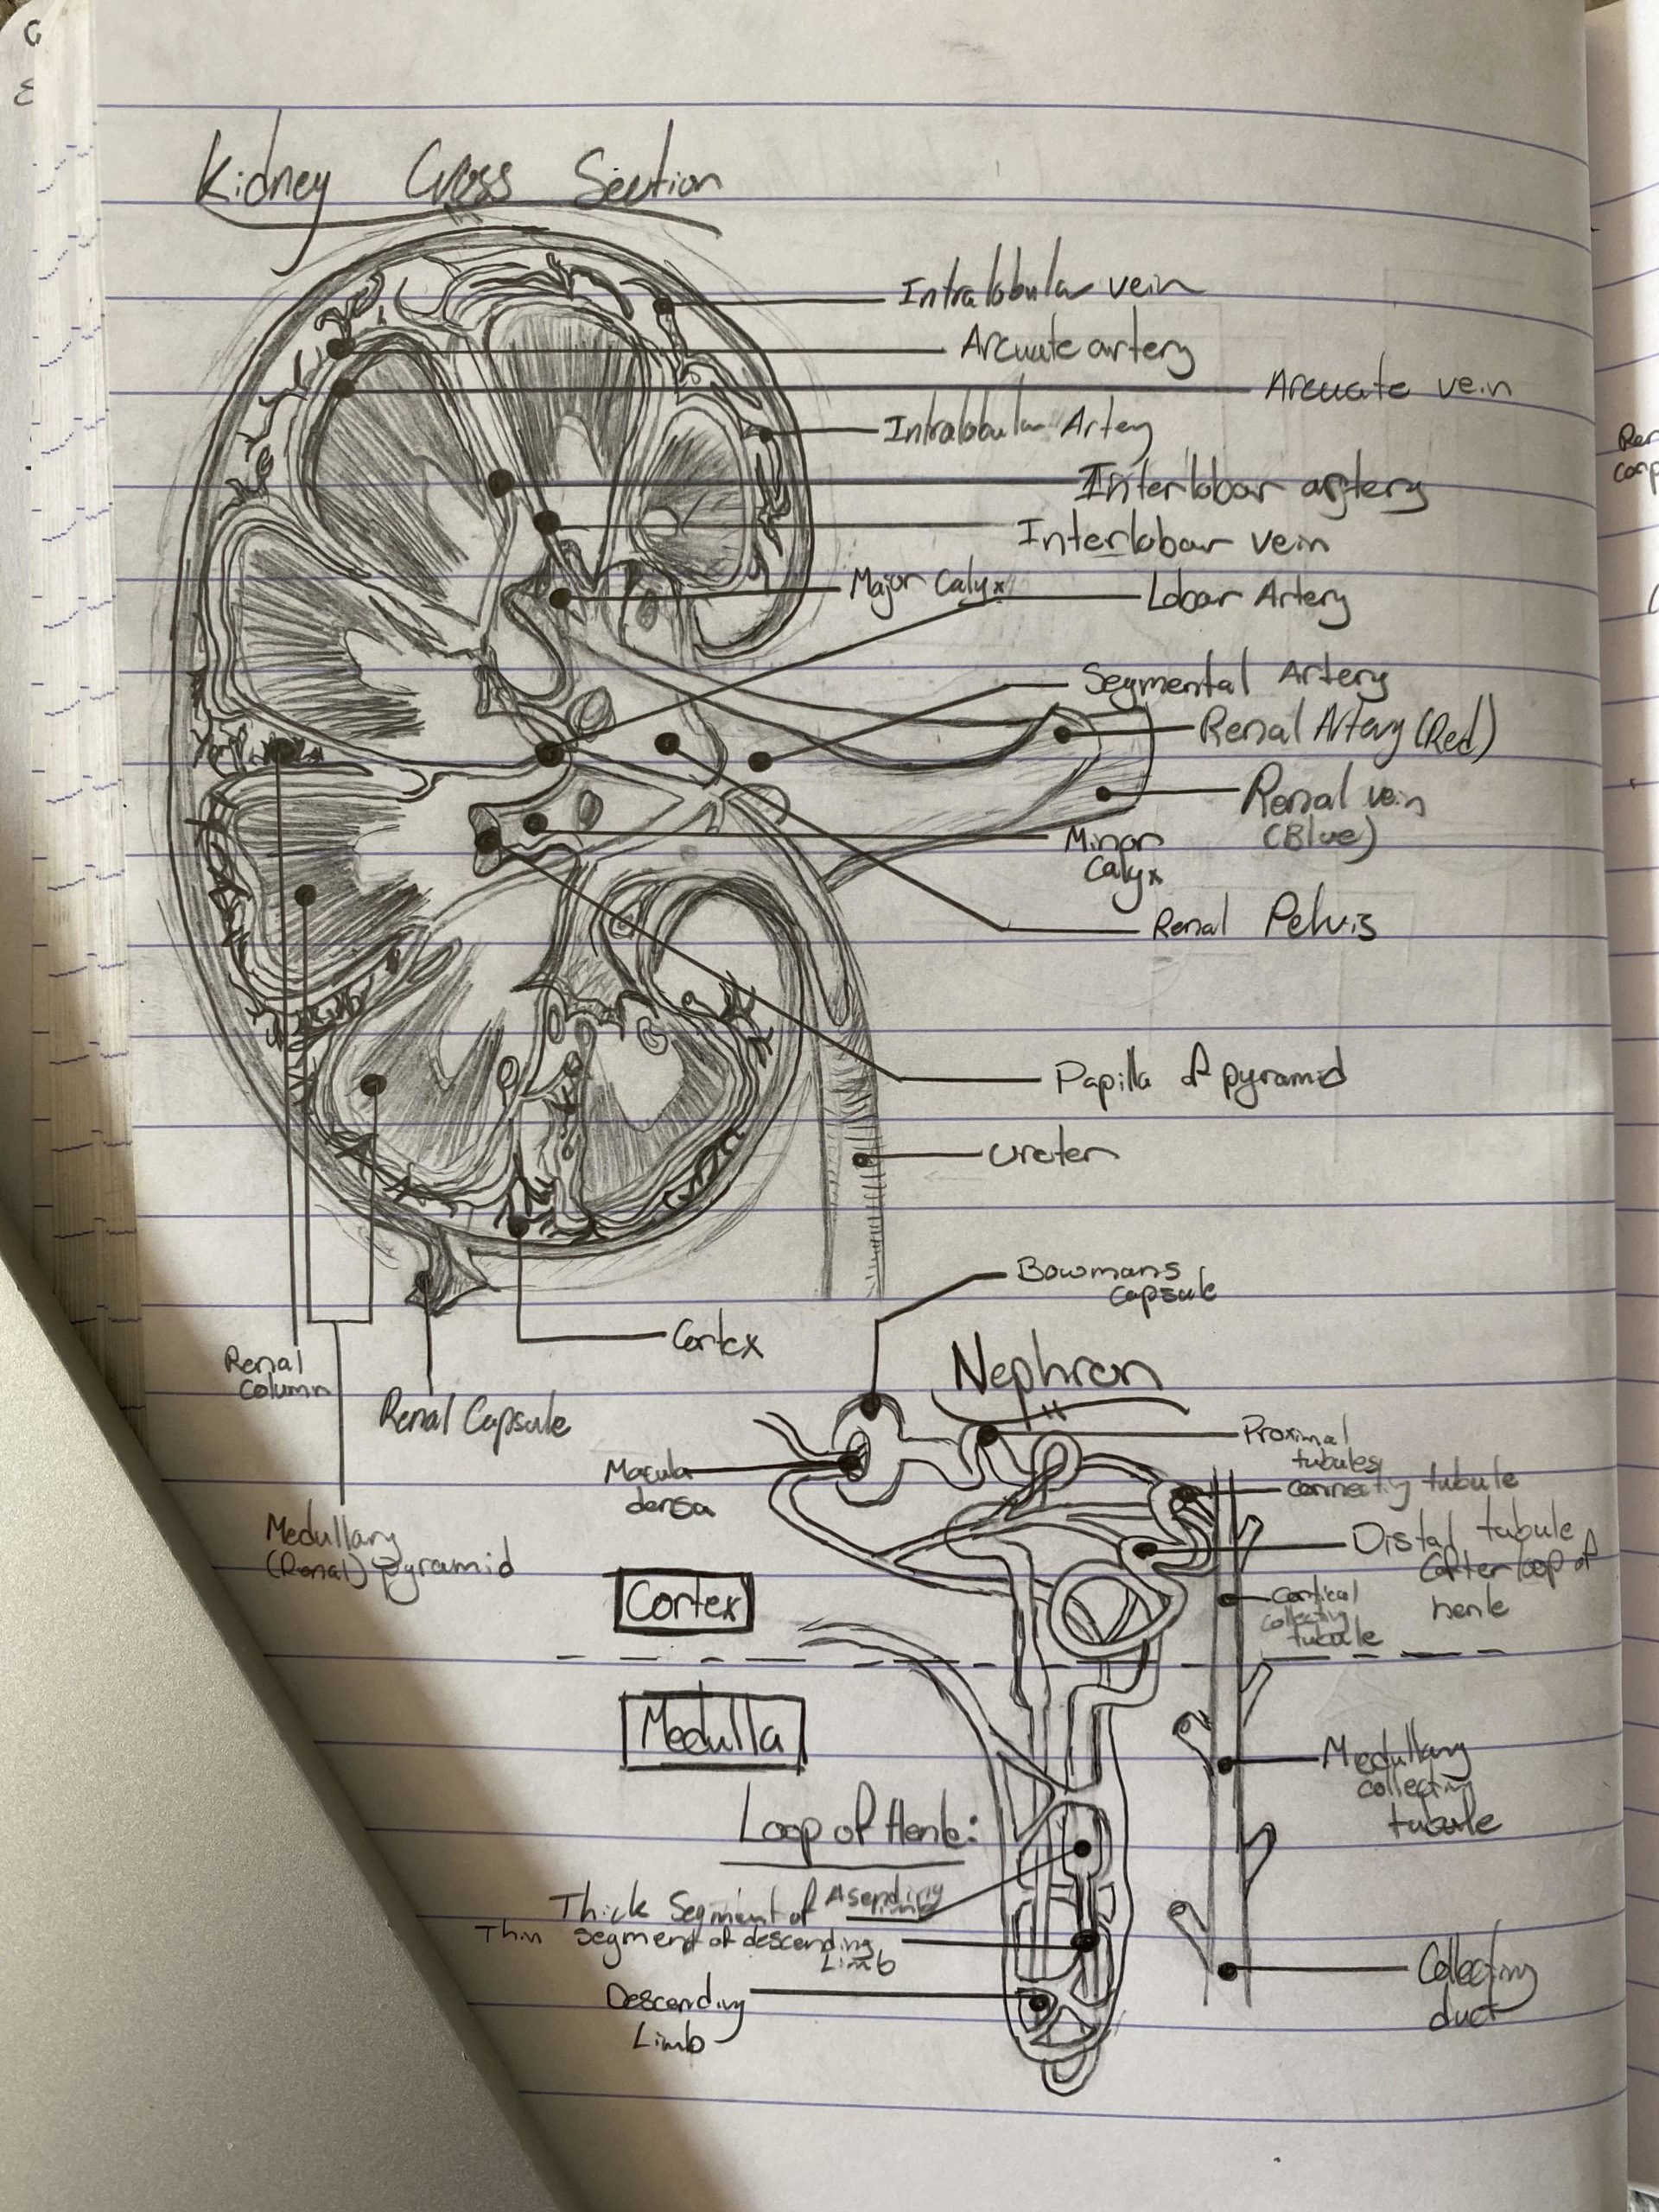 Kidney Cross Section
Intralobular vein
Arcuate artery
Arcuate vein
Intralobular Artery
Interlobar artery
Interlobar vein
Major Calyx
Lobar Artery
Segmental Artery
Renal Artery (Red)
Renal vein
(Blue)
Minor
Calyx
Renal Pelvis
Papilla of pyramid
Ureter
Bowmans
capsule
Cortex
Renal
Column
Renal Capsule
Nephron
Proximal
tubules
Macula
densa
connecty tubule
Medullary
(Renal) pyramid
Distal tubule
after loop of
henle
Cortex
Cortical
collecting
tubule
Medulla
Medullary
collecting
tubule
Loop of Henle:
Thick Segment of Asending
limb
Thin segment of descending
Limb
Descending
Limb
Collecting
duct